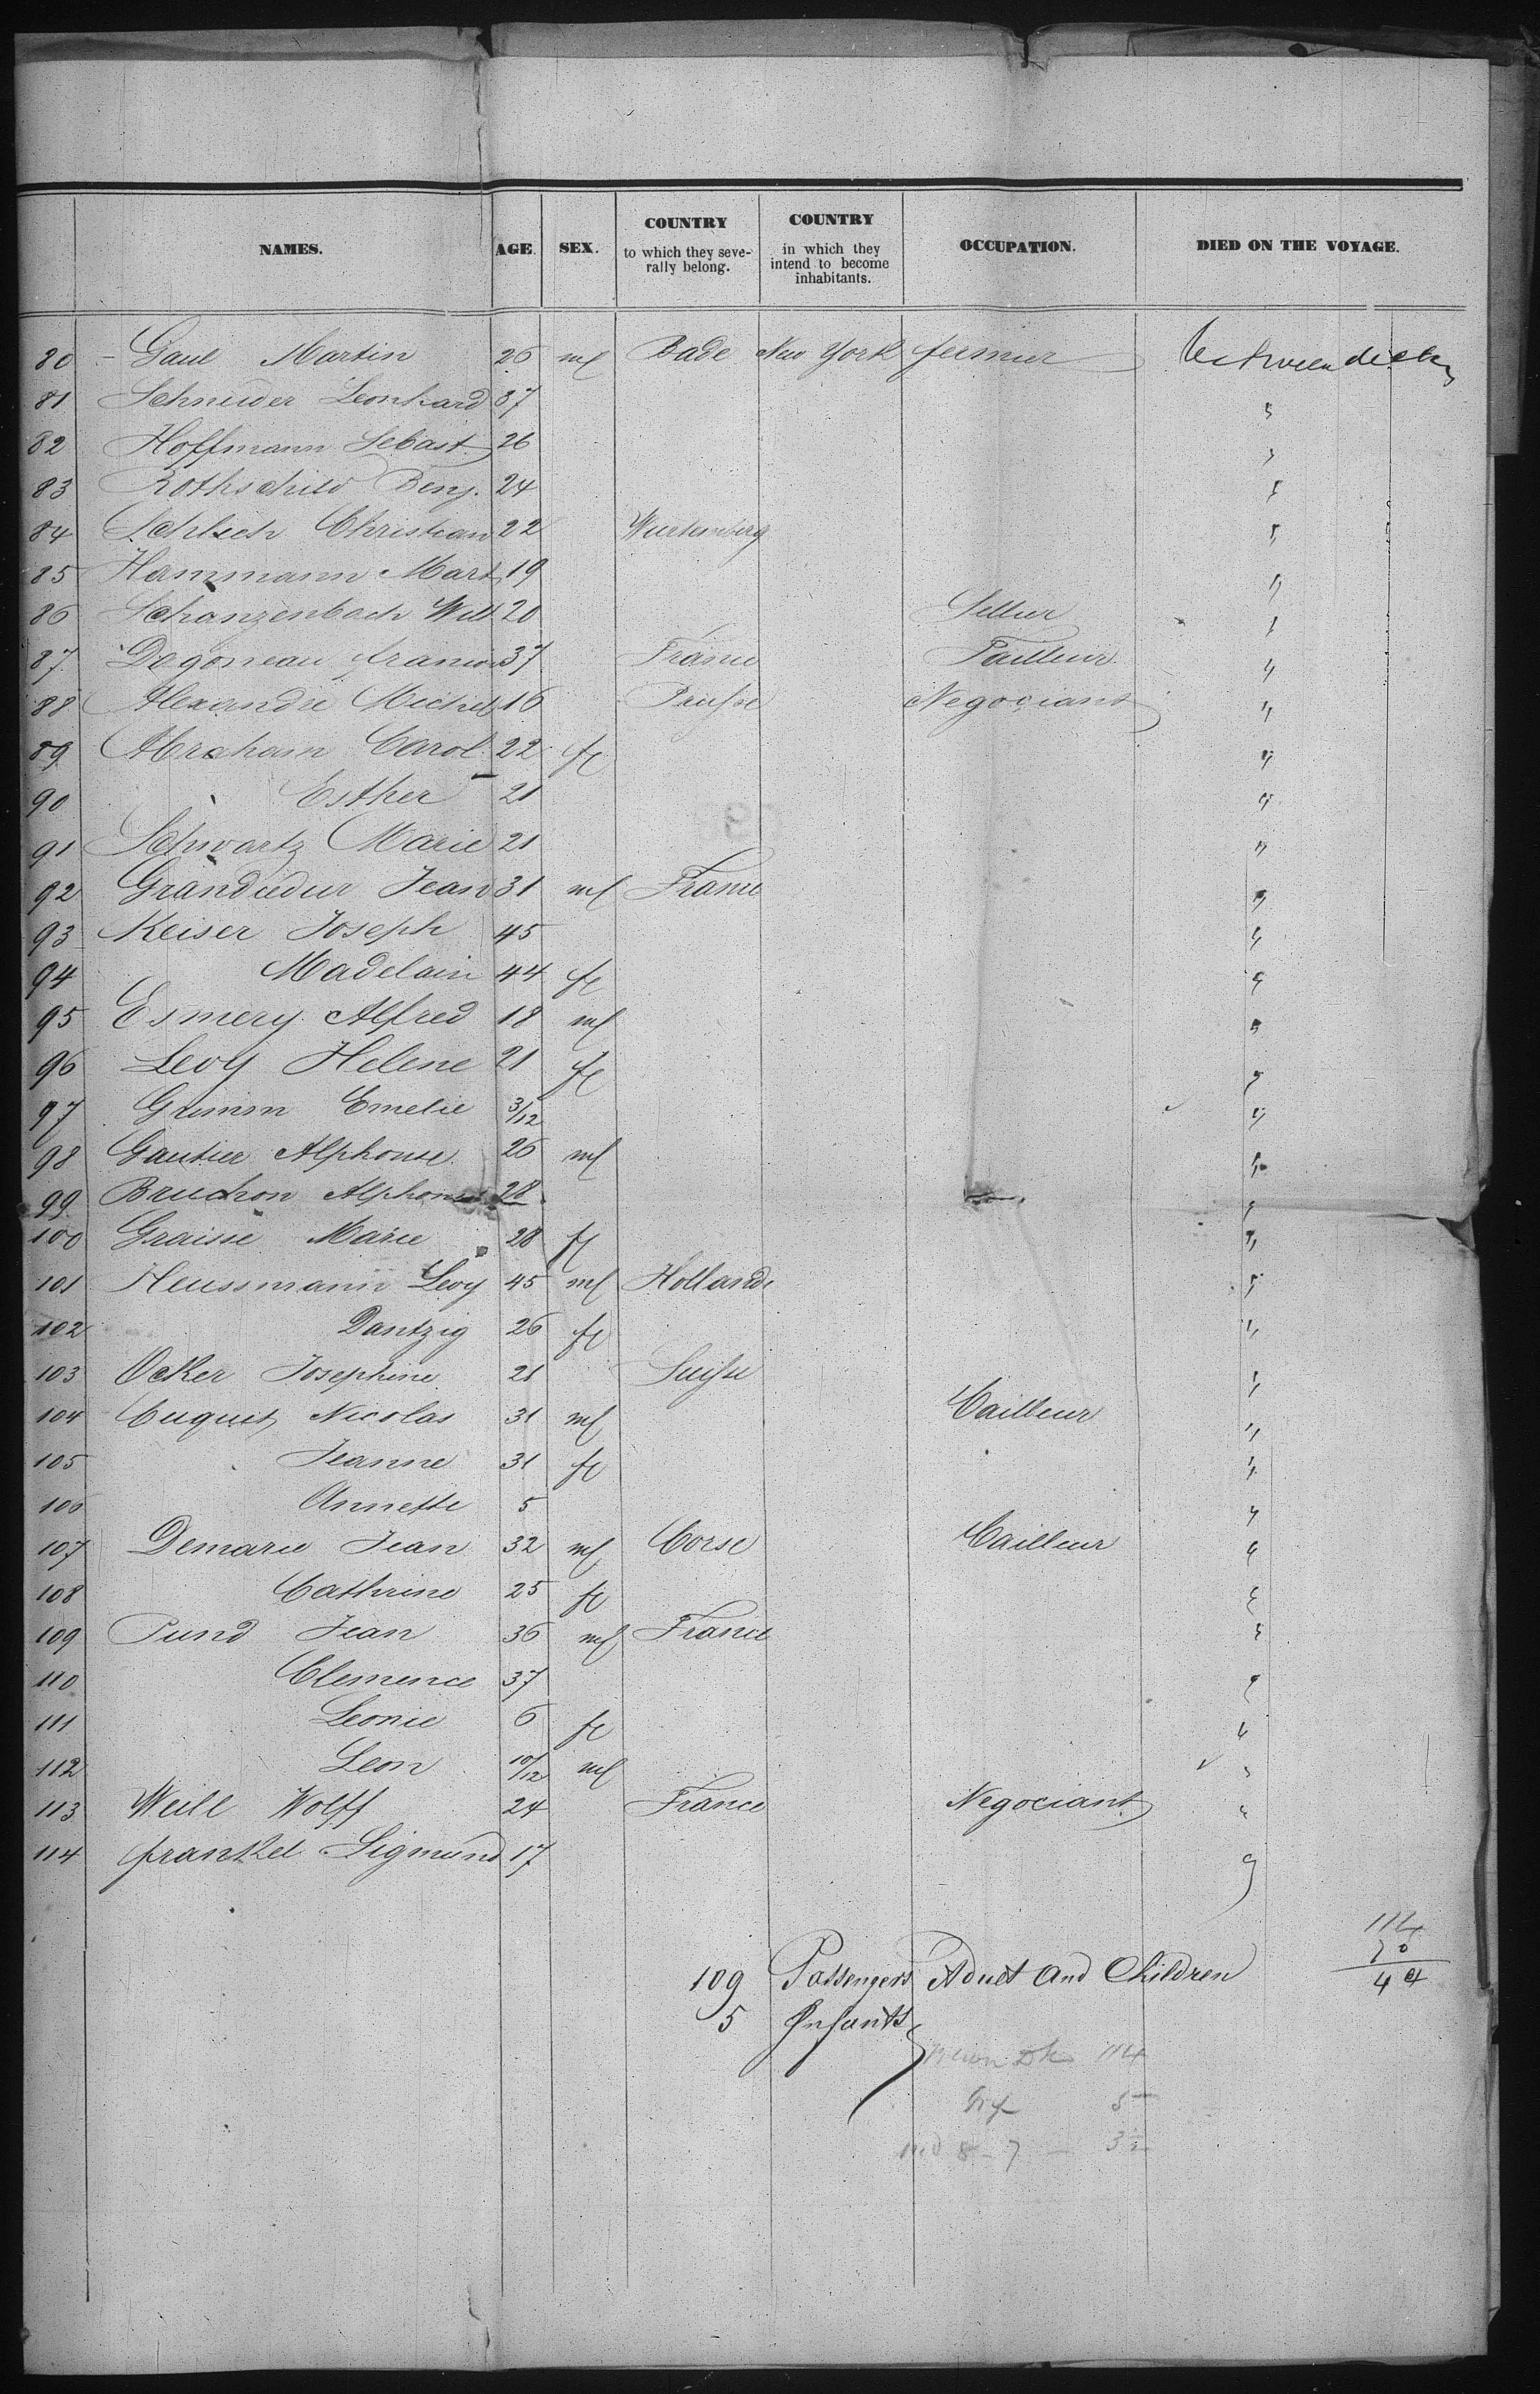 NAMES. AGE. SEX. COUNTRY to which they seve-rally belong. COUNTRY in which they intend to become inhabitants. OCCUPATION. DIED ON THE VOYAGE.
80 Gaul Martin 26 ml Bade New York fermier between decks
81 Schneider Leonhard 37 "
82 Hoffmann Sebast. 26 "
83 Rothschild Benj. 24 "
84 Schlech Christian 22 Wurtemberg "
85 Hammann Mart 19 "
86 Schanzenbach Will 20 Sellier "
87 Dagoneau francois 37 France Tailleur "
88 Alexandre Michel 16 Prusse Negociant "
89 Abraham Carol 22 fe "
90 Esther 21 "
91 Schwartz Marie 21 "
92 Grandudur Jean 31 ml France "
93 Keiser Joseph 45 "
94 Madelain 44 fe "
95 Esmery Alfred 18 ml "
96 Levy Helene 21 fe "
97 Grimm Emelie 3/12 "
98 Gautier Alphonse 26 ml "
99 Bruchon Alphonse 28 "
100 Graisse Marie 28 fe "
101 Heussmann Levy 45 ml Hollande "
102 Dantzig 26 fe "
103 Ocker Josephine 21 Suisse "
104 Cuquet Nicolas 31 ml Tailleur "
105 Jeanne 31 fe "
106 Annette 5 "
107 Demarie Jean 32 ml Corse Tailleur "
108 Cathrine 25 fe "
109 Pund Jean 36 ml France "
110 Clemence 37 "
111 Leonie 6 fe "
112 Leon 10/12 ml "
113 Weill Wolff 24 France Negociant "
114 frankel Sigmund 17 "
114
70
44
109 Passengers Adult and Children
5 Infants
114
5